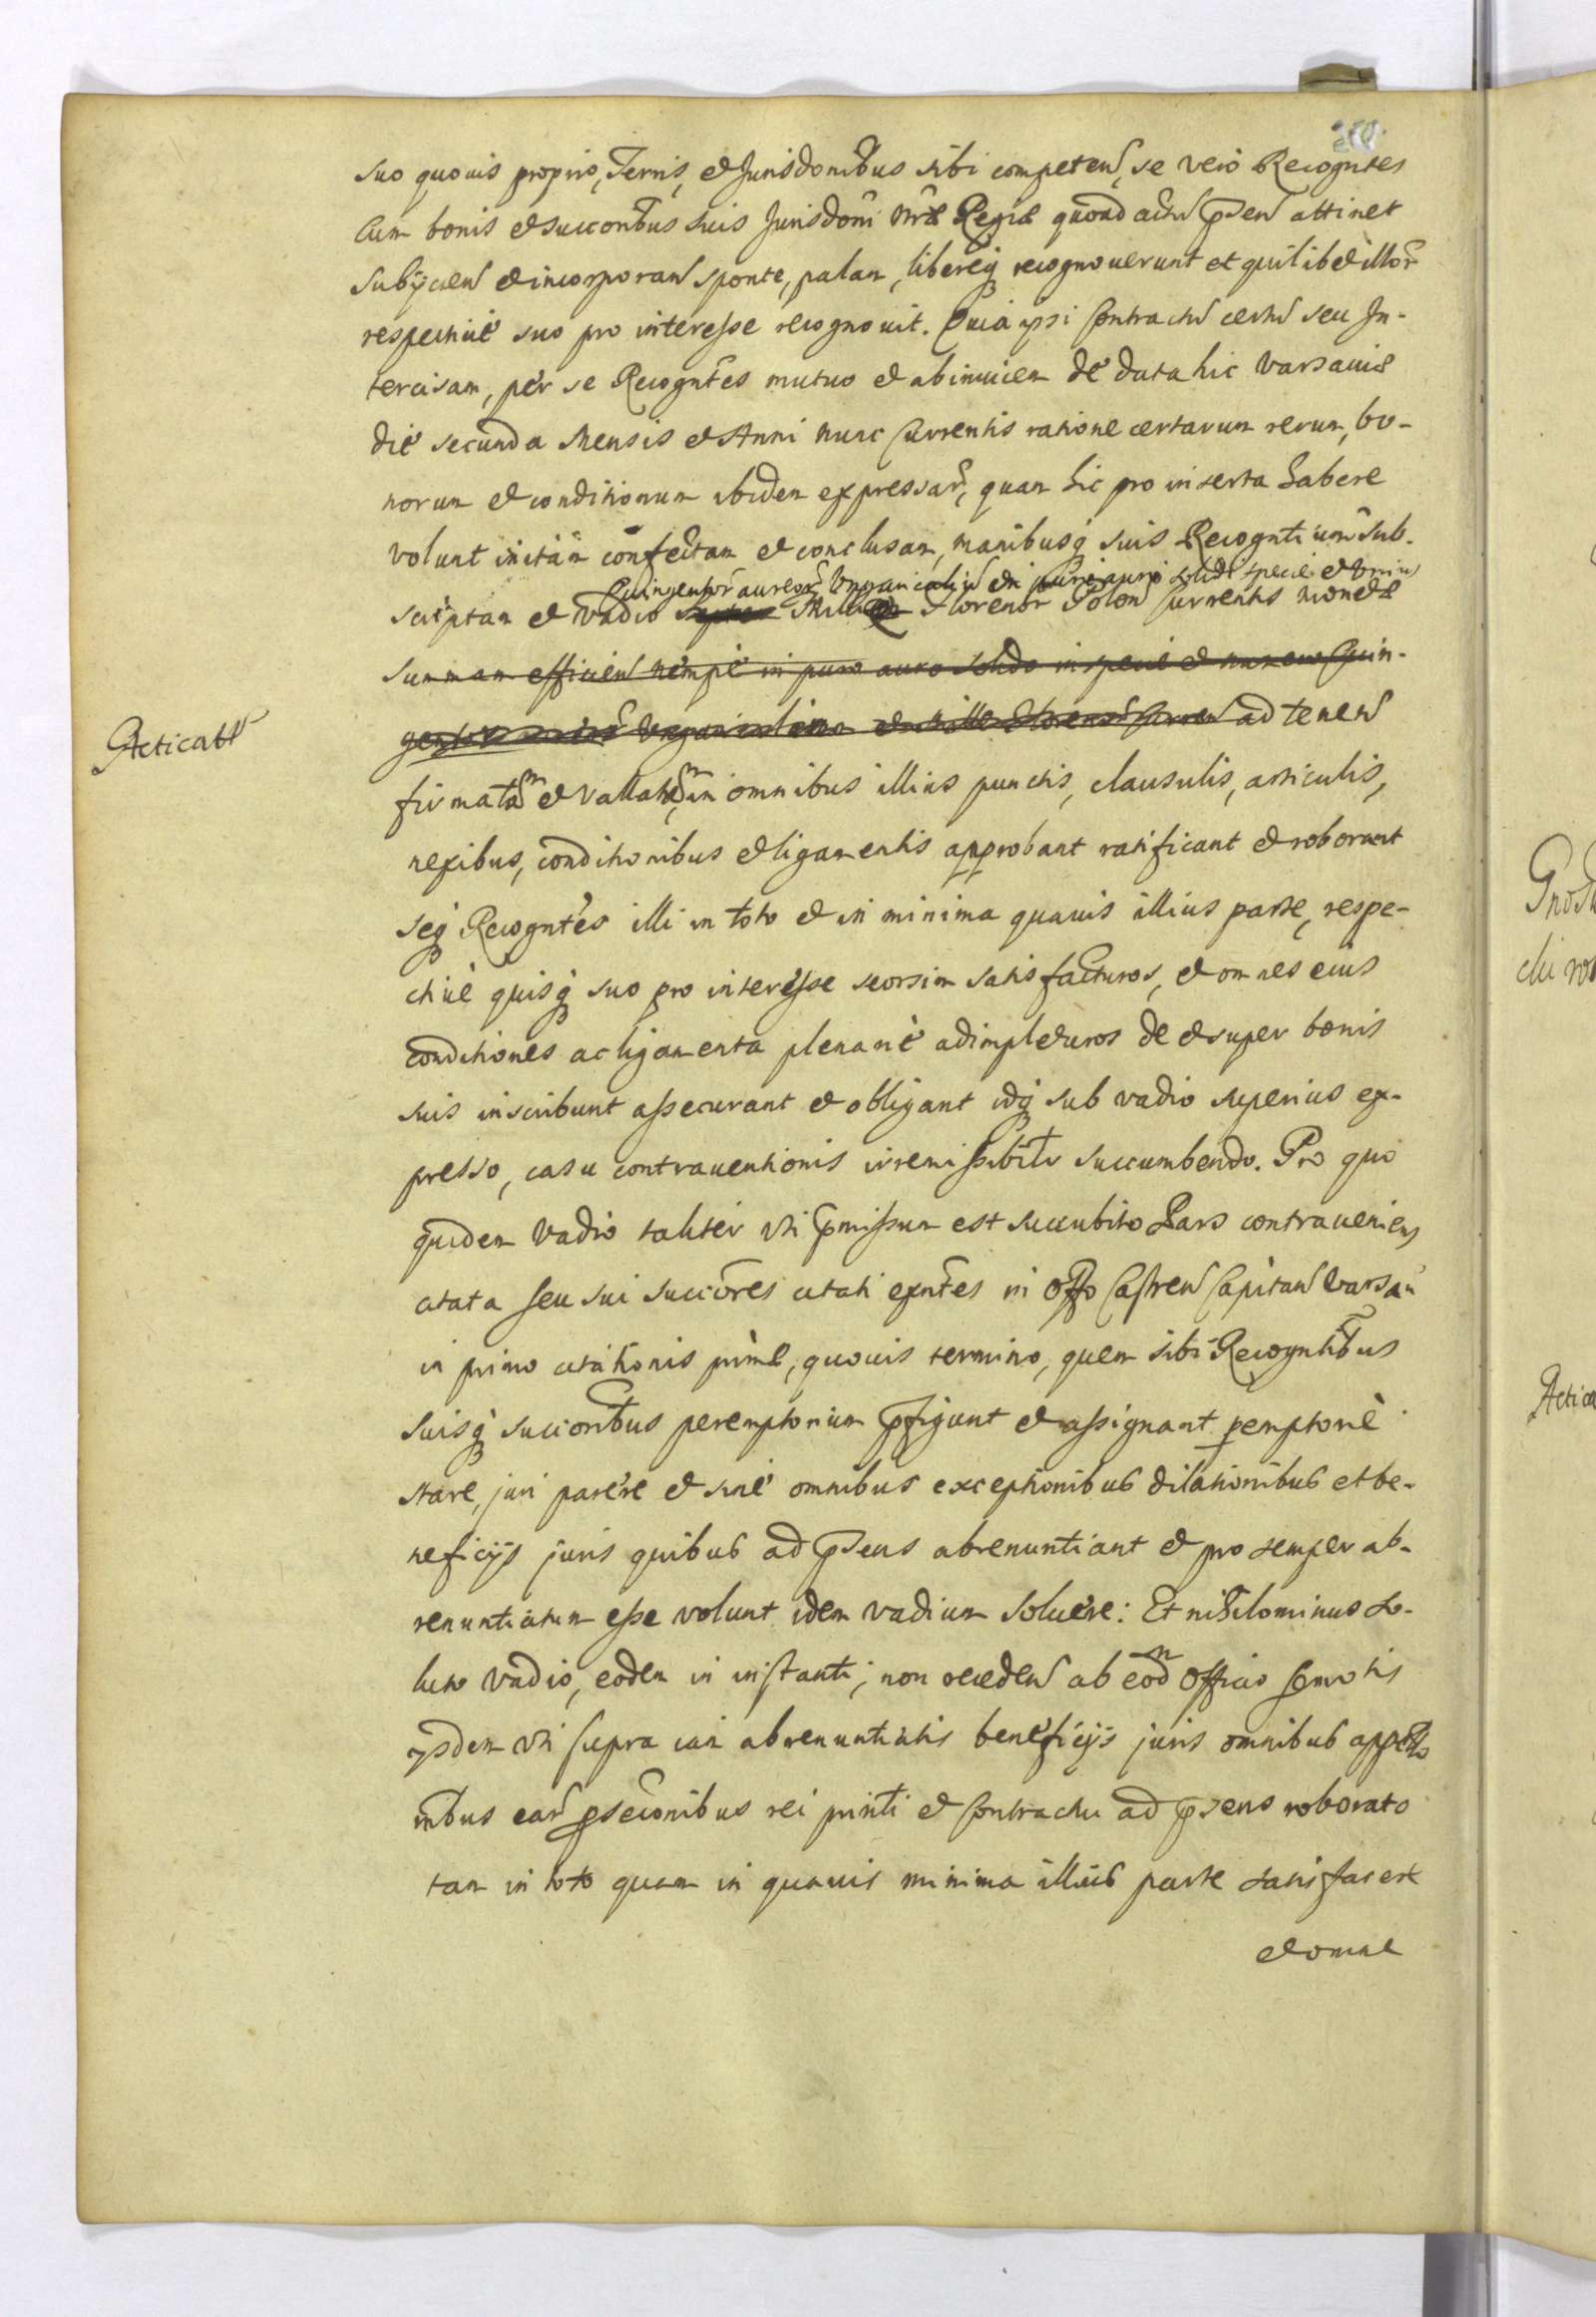 suo quovis proprio, Terris, et Jurisdonibus sibi competen, se vero Recogntes
Cum bonis et succoribus suis Jurisdoni nrae Regiae quoad actum pnsen attinet
subijcien et incorporan sponte, palam, libereq recognoverunt et quilibet illor
respective suo pro interesse recognovit. Quia ipsi Contractu certu seu In-
tercisam, per se Recogntes mutuo et abinvicem de data hic Varsaviae
die secunda Mensis et Anni nunc Currentis ratione certarum rerum, bo-
norum et conditionum ibidem expressar, quam hic pro inserta habere
volunt initam confectam et conclusam, manibusq suis Recogntium sub-
Quingentor aureor Ungaricaliu in puri auri solidi specie et
scriptam et vadio Mille Florenor Polon Currentis monetae
summam efficien nempe in puro auro solido in specie et numero Quin-
gentor Ungaricalium et mille Florenor Curren ad tenen
Acticatt
firmatam et vallatam, in omnibus illius punctis, clausulis, articulis,
nexibus, conditionibus et ligamentis approbant ratificant et roborant
seq Recogntes illi in toto et in minima quavis illius parte, respe-
ctive quisq suo pro interesse seorsim satisfacturos, et omnes eius
conditiones ac ligamenta plenarie adimpleturos de et super bonis
suis inscribunt assecurant et obligant idq sub vadio superius ex-
presso, casu contraventionis irremissibilr succumbendo. Pro quo
quidem vadio taliter uti pmissum est succubito Pars contraveniens
citata seu sui succores citati exntes in Offo Castren Capitan Varsav
in primo citationis prime, quovis termino, quem sibi Recogntibus
suisq succoribus peremptorium pfigunt et assignant pemptorie
stare, juri parere et sine omnibus exceptionibus dilationibus et be-
neficijs juris quibus ad pnsens abrenuntiant et pro semper ab-
renuntiatum esse volunt idem vadium solvere: Et nihilominus so-
luto vadio, eodem in instanti, non receden ab eodm Officio semotis
ijsdem uti supra iam abrenuntiatis beneficijs juris omnibus appello
nibus ear psecionibus rei printi et Contractui ad pnsens roborato
tam in toto quam in quavis minima illius parte satisfacere
et omne